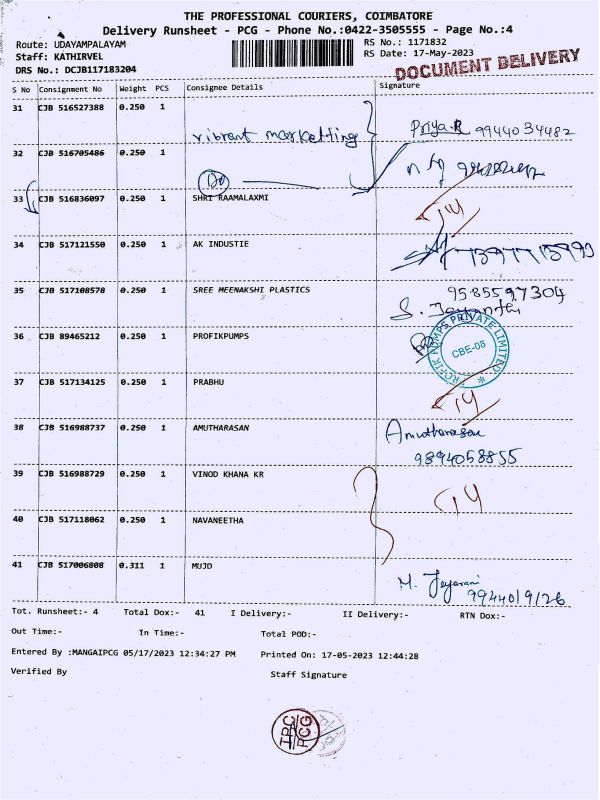 THE PROFESSIONAL COURIERS, COIMBATORE
Delivery Runsheet - PCG - Phone No.:0422-3505555 - Page No.:4
Route: UDAYAMPALAYAM RS No.: 1171832
Staff: KATHIRVEL RS Date: 17-May-2023
DRS No.: DCJB117183204 DOCUMENT DELIVERY
S No Consignment No Weight PCS Consignee Details Signature
31 CJB 516527388 0.250 1
vibrant marketting Priya.R 9944034482
32 CJB 516705486 0.250 1
Do
33 CJB 516836097 0.250 1 SHRI RAAMALAXMI
34 CJB 517121550 0.250 1 AK INDUSTIE
35 CJB 517108578 0.250 1 SREE MEENAKSHI PLASTICS 9585597304
S. Jayanthi
36 CJB 89465212 0.250 1 PROFIKPUMPS
PROFIK PUMPS PRIVATE LIMITED
CBE-06
37 CJB 517134125 0.250 1 PRABHU
38 CJB 516988737 0.250 1 AMUTHARASAN Amutharasan
9894058855
39 CJB 516988729 0.250 1 VINOD KHANA KR
40 CJB 517118062 0.250 1 NAVANEETHA
41 CJB 517006808 0.311 1 MUJD
M. Jeyarani
9944019126
Tot. Runsheet:- 4 Total Dox:- 41 I Delivery:- II Delivery:- RTN Dox:-
Out Time:- In Time:- Total POD:-
Entered By :MANGAIPCG 05/17/2023 12:34:27 PM Printed On: 17-05-2023 12:44:28
Verified By Staff Signature
PCG